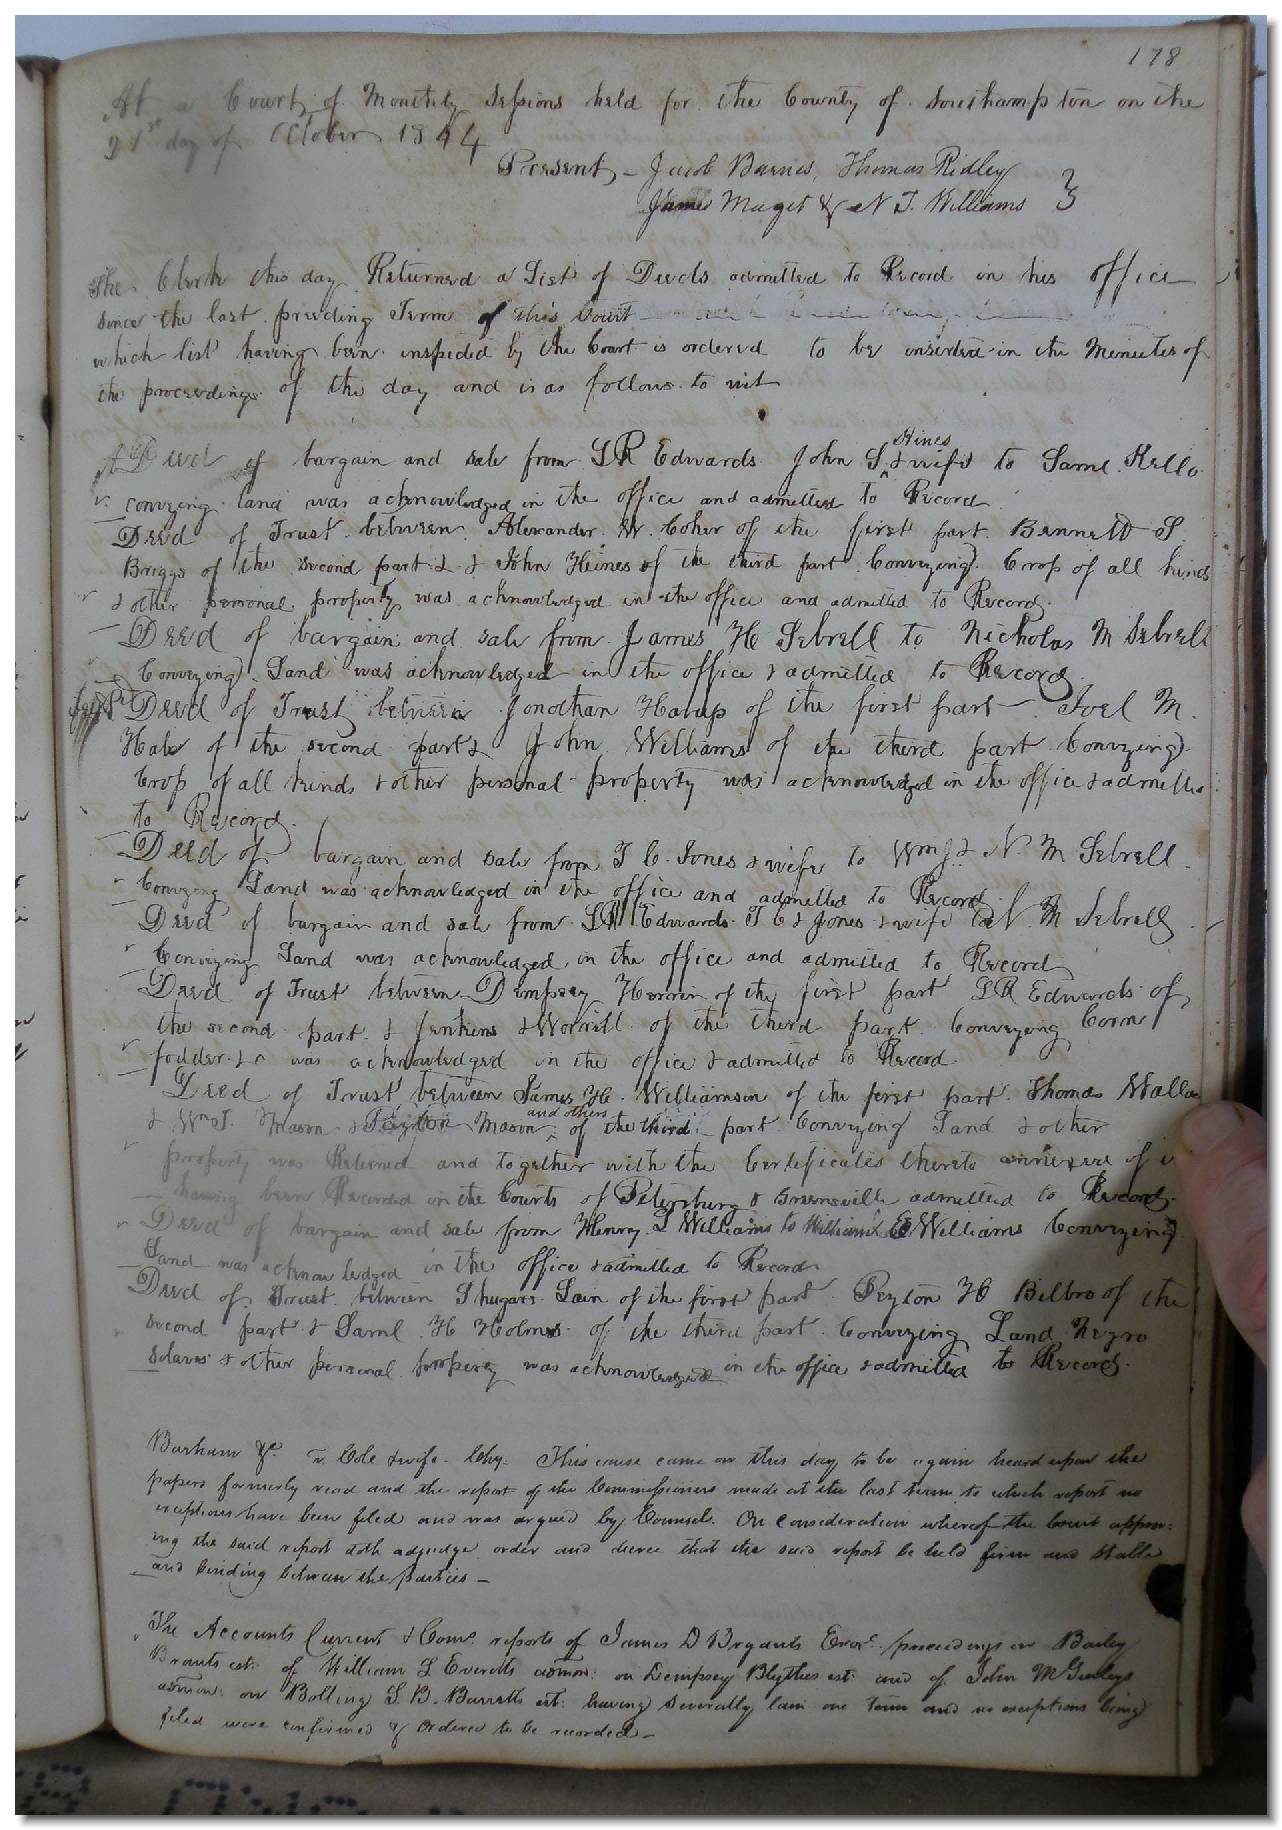 178
At a Court of Monthly Sessions held for the County of Southampton on the
21st day of October 1844
Present - Jacob Barnes, Thomas Ridley
James Maget & N T. Williams }
The Clerk this day Returned a List of Deeds admitted to Record in his office
since the last preeding Term of this Court
which list having been inspected by the Court is ordered to be inserted in the Minutes of
the proceedings of the day and is as follows to wit
A Deed of bargain and sale from L R Edwards John S Hines & wife to Saml. Kello
conveying land was acknowledged in the office and admitted to Record
Deed of Trust between Alexander W. Coker of the first part Bennett S.
Briggs of the second part & & John Heines of the third part Conveying Crop of all kinds
& other personal property was acknowledged in the office and admitted to Record.
Deed of bargain and sale from James H Sebrell to Nicholas M Sebrell
Conveying Land was acknowledged in the office & admitted to Record
Deed of Trust between Jonathan Harup of the first part Joel M.
Hale of the second part & John Williams of the third part Conveying
Crop of all kinds & other personal property was acknowledged in the office & admitted
to Record.
Deed of bargain and sale from T C. Jones & wife to Wm J. & N M Sebrell.
Conveying Land was acknowledged in the office and admitted to Record
Deed of bargain and sale from L R Edwards T C & Jones & wife to N. M Sebrell
Conveying Land was acknowledged in the office and admitted to Record
Deed of Trust between Dempsey of the first part L R Edwards of
the second part & Jenkins & Worrell of the third part Conveying Corn
fodder &c was acknowledged in the office & admitted to Record
Deed of Trust between James H. Williamson of the first part Thomas Walla
& Wm T. Mason & Mason and others of the third part Conveying Land & other
property was Returned and together with the Certificates thereto of
having been Recorded in the Courts of Petersburg & Greensville admitted to Record.
Deed of bargain and sale from Henry L Williams to William E Williams Conveying
Land was acknowledged in the office & admitted to Record
Deed of Trust between Shugars Lain of the first part Peyton H Bilbro of the
second part & Saml H Holmes of the third part Conveying Land Negro
Slaves & other personal property was acknowledged in the office & admitted to Record.
Barham &c. v. Cole & wife. Chy. This cause came on this day to be again heard upon the
papers formerly read and the report of the Commissioners made at the last term to which report no
exceptions have been filed and was argued by Counsel. On consideration whereof the Court approv=
ing the said report doth adjudge order and decree that the said report be held firm and stable
and binding between the parties -
The Accounts Current & Coms. reports of James D Bryants Exor. preceedings on Bailey
Brants est. of William L Everetts admon: on Dempsey Blythes est. and of John McGinleys
admon: on Bolling S. B. Barretts est: having severally lain one term and no exceptions being
filed were confirmed & Ordered to be recorded -